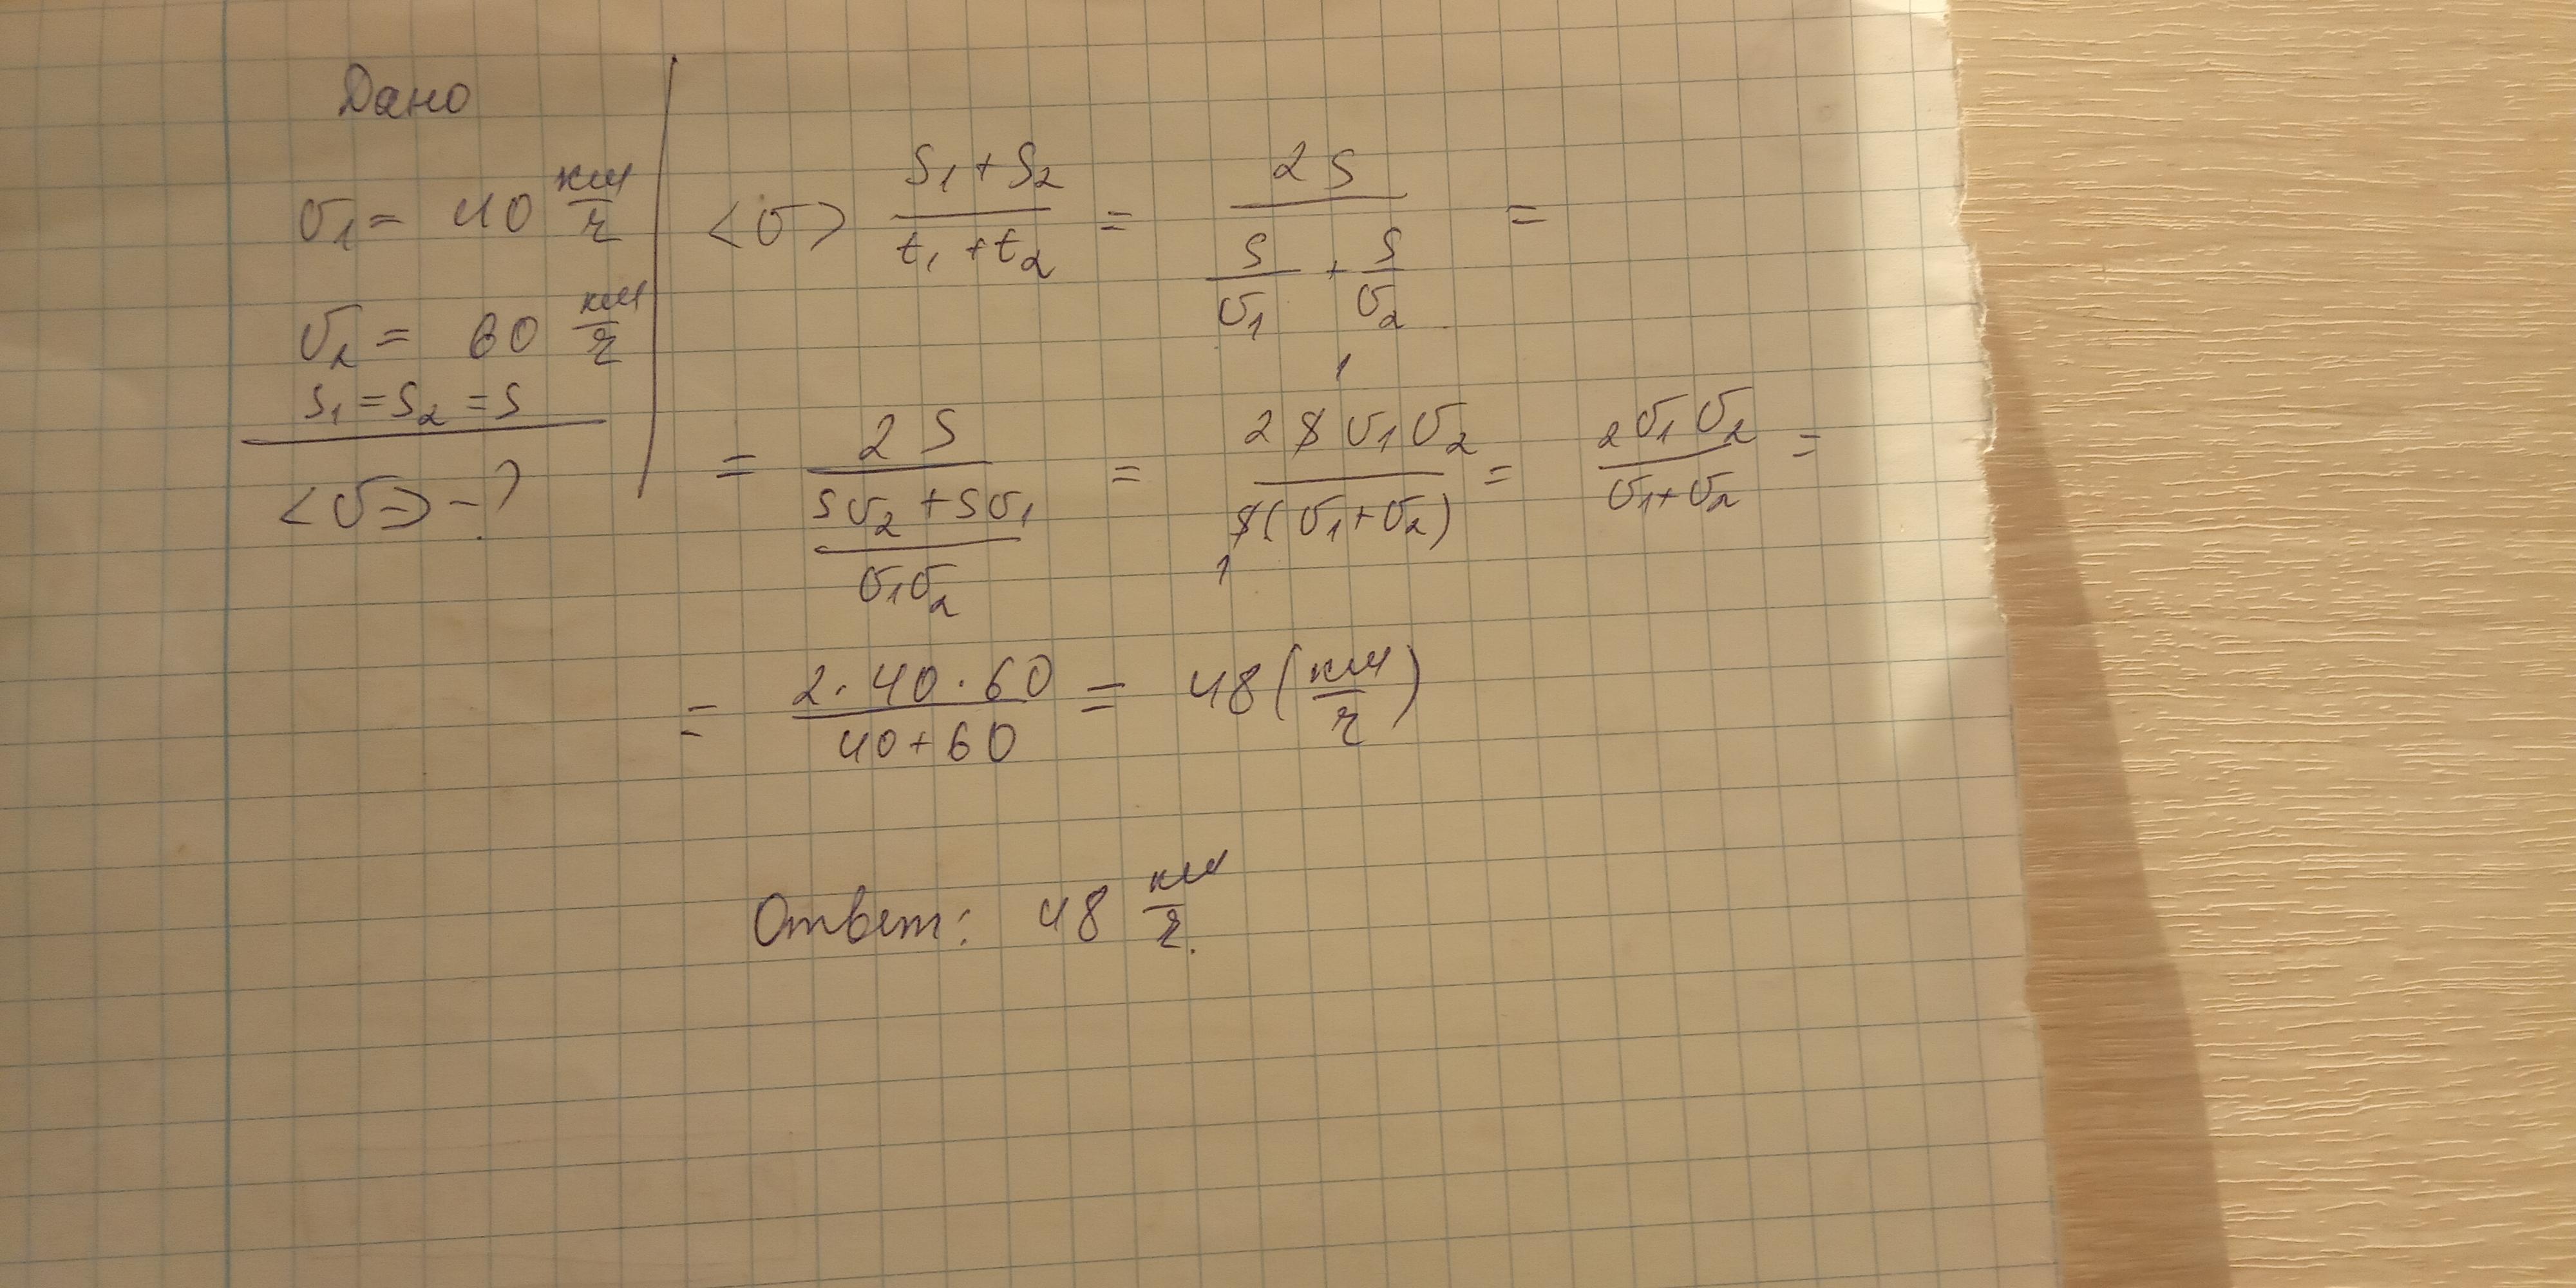 Дано
υ₁ = 40 км/ч
υ₂ = 60 км/ч
S₁ = S₂ = S
<υ> - ?
<υ> (S₁ + S₂)/(t₁ + t₂) = 2S/(S/υ₁ + S/υ₂) =
= 2S/((Sυ₂ + Sυ₁)/(υ₁υ₂)) = 2Sυ₁υ₂/(S(υ₁ + υ₂)) = 2υ₁υ₂/(υ₁ + υ₂) =
= (2 · 40 · 60)/(40 + 60) = 48 (км/ч)
Ответ: 48 км/ч.